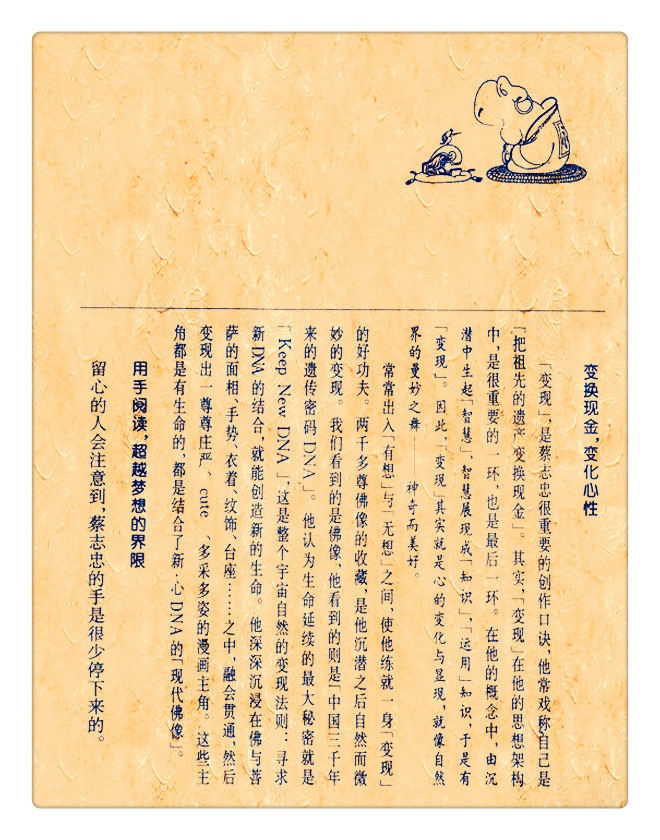 变换现金，变化心性
「变现」，是蔡志忠很重要的创作口诀，他常戏称自己是
「把祖先的遗产变换现金」。其实，「变现」在他的思想架构
中，是很重要的一环，也是最后一环。在他的概念中，由沉
潜中生起「智慧」，智慧展现成「知识」，「运用」知识，于是有
「变现」。因此，「变现」其实就是心的变化与显现，就像自然
界的曼妙之舞——神奇而美好。
常常出入「有想」与「无想」之间，使他练就一身「变现」
的好功夫。两千多尊佛像的收藏，是他沉潜之后自然而微
妙的变现。我们看到的是佛像，他看到的则是「中国三千年
来的遗传密码DNA」。他认为生命延续的最大秘密就是
「Keep New DNA」，这是整个宇宙自然的变现法则：寻求
新DNA的结合，就能创造新的生命。他深深沉浸在佛与菩
萨的面相、手势、衣着、纹饰、台座……之中，融会贯通，然后
变现出一尊尊庄严、cute、多采多姿的漫画主角。这些主
角都是有生命的，都是结合了新·心DNA的「现代佛像」。
用手阅读，超越梦想的界限
留心的人会注意到，蔡志忠的手是很少停下来的。